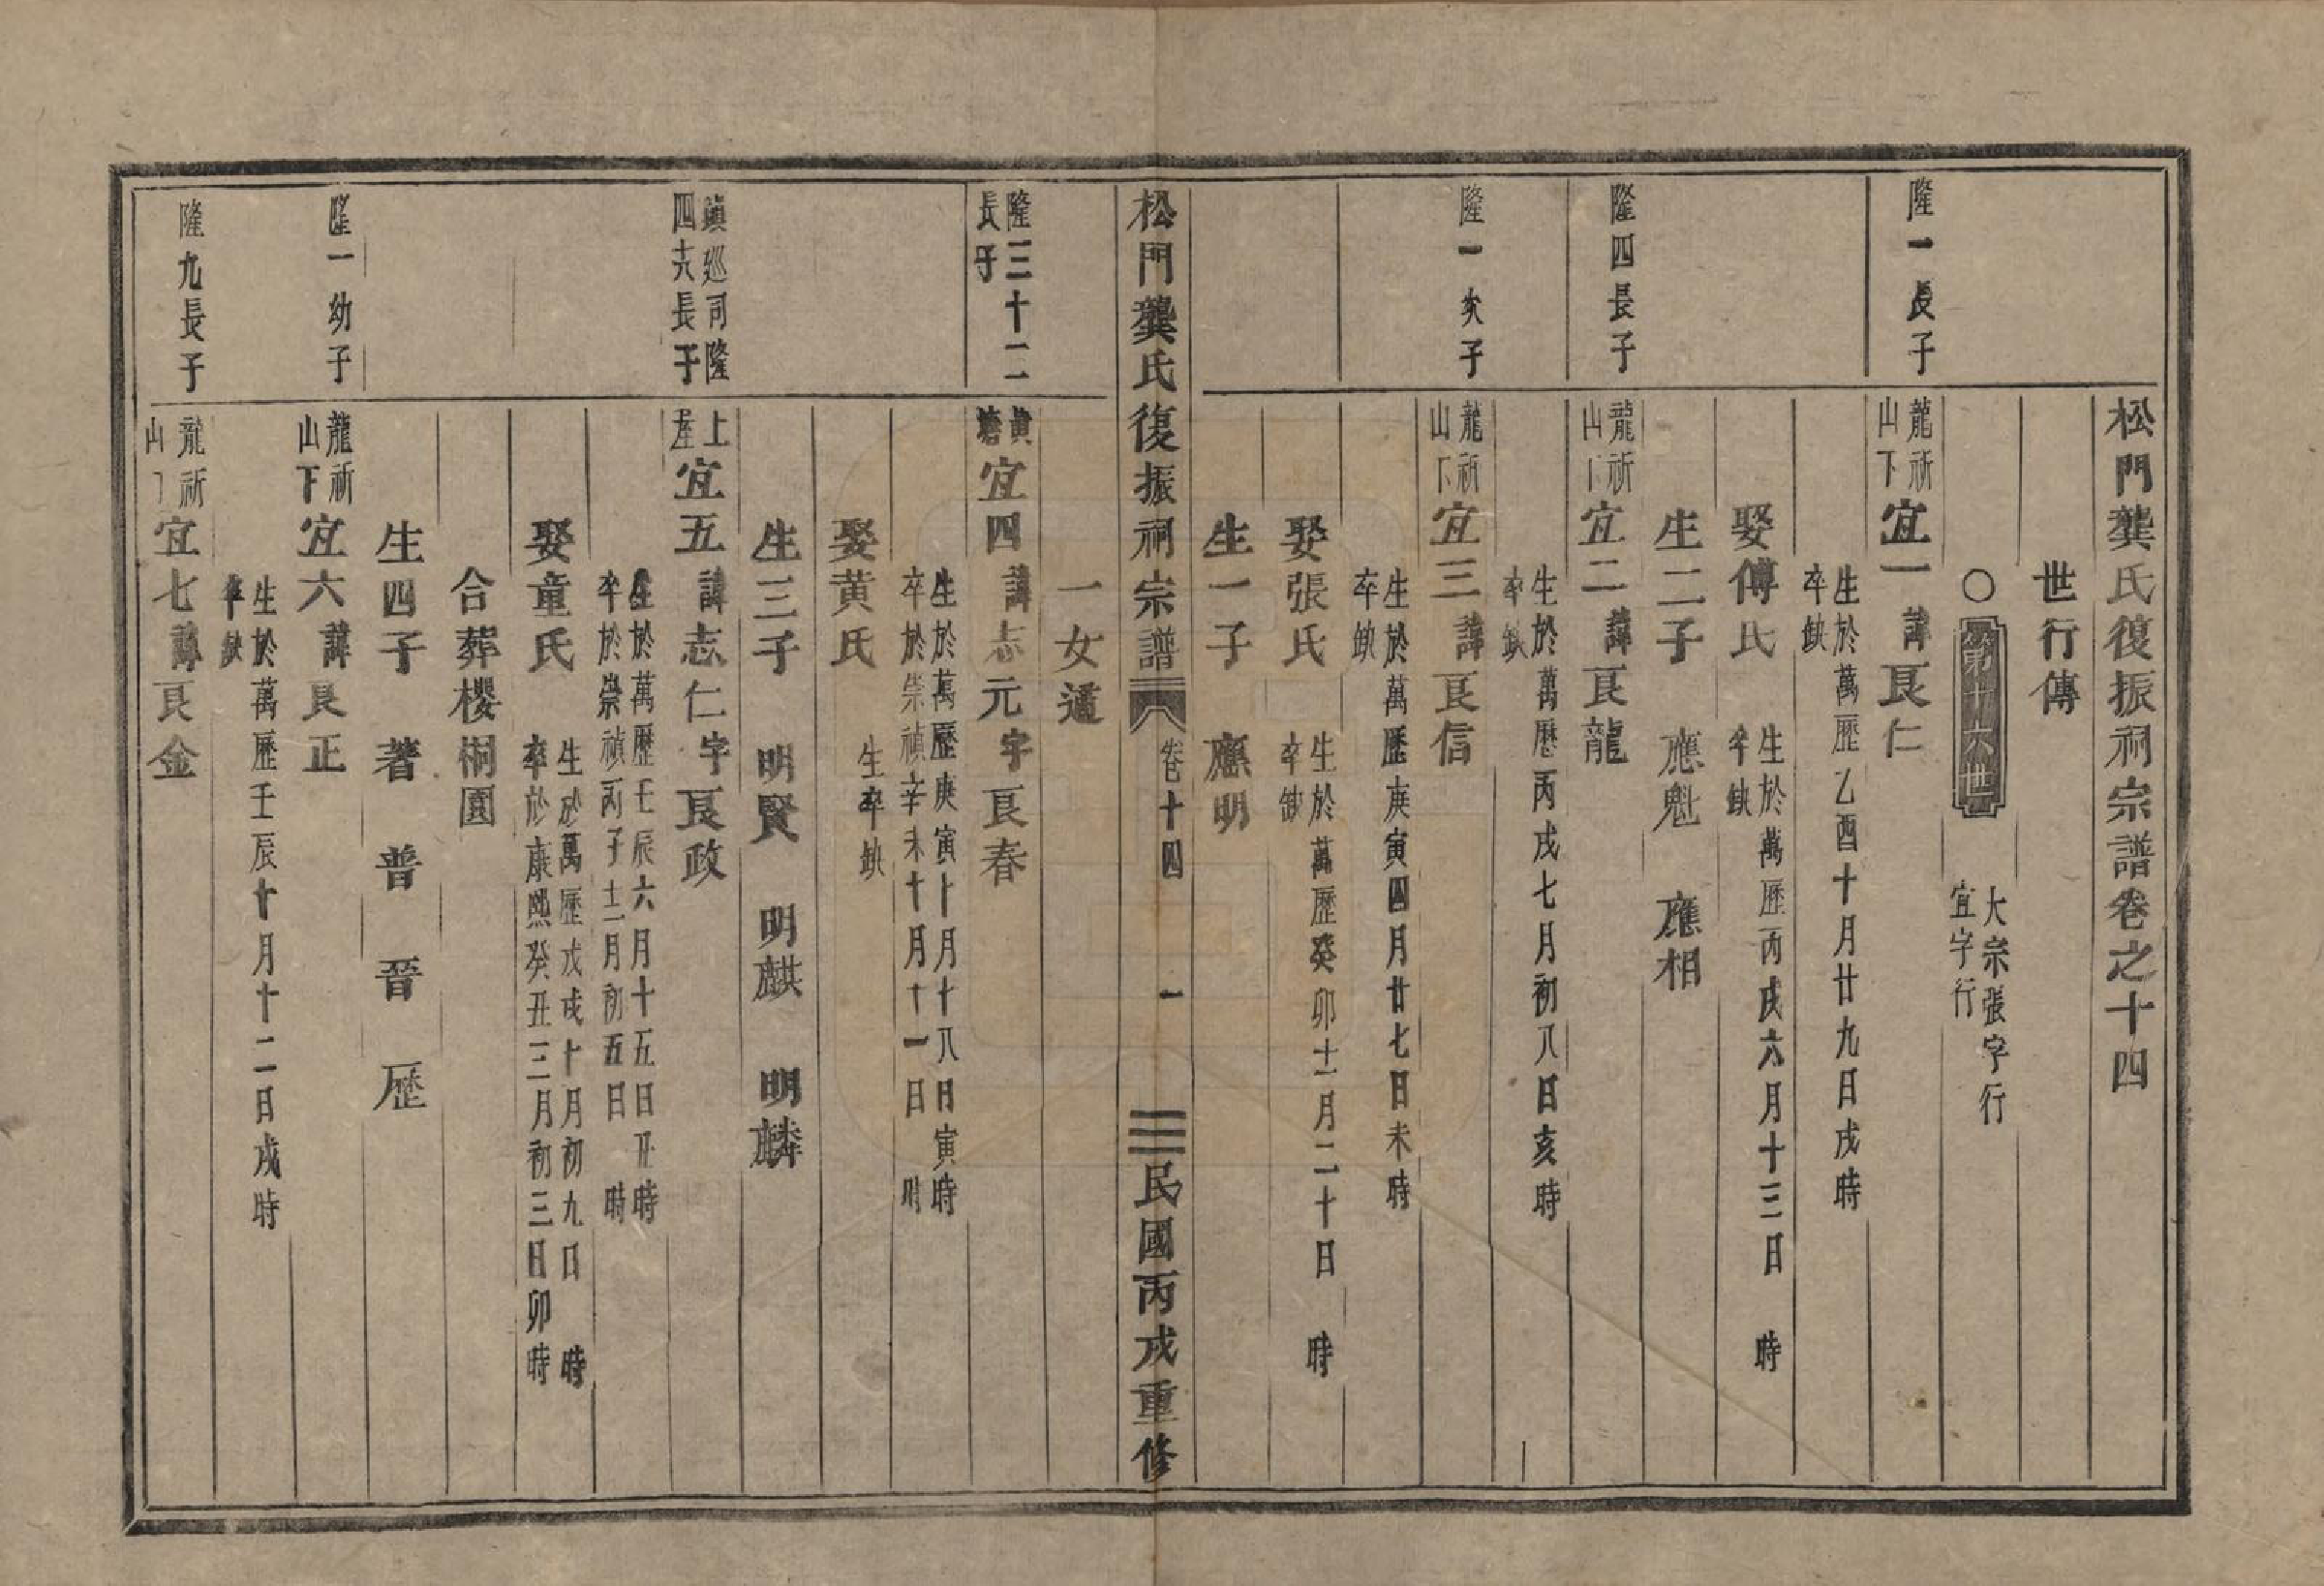 松門龔氏復振祠宗譜卷之十四
世行傳
〇第十六世
大宗張字行
宜字行
隆一長子
龍祈
山下
宜一諱良仁
生於萬歷乙酉十月廿九日戌時
卒缺
娶傅氏
生於萬歷丙戌六月十三日 時
卒缺
生二子 應魁 應相
隆四長子
龍祈
山下
宜二諱良龍
生於萬歷丙戌七月初八日亥時
卒缺
隆一次子
龍祈
山下
宜三諱良信
生於萬歷庚寅四月廿七日未時
卒缺
娶張氏
生於萬歷癸卯十二月二十日 時
卒缺
生一子 應明
松門龔氏復振祠宗譜 卷十四 一 民國丙戌重修
一女適
隆三十二
長子
黄塘
宜四諱志元字良春
生於萬歷庚寅十月十八日寅時
卒於崇禎辛未十月十一日 時
娶黄氏
生卒缺
生三子 明賢 明麒 明麟
鎮巡司隆
四六長子
上屋
宜五諱志仁字良政
生於萬歷壬辰六月十五日丑時
卒於崇禎丙子十二月初五日 時
娶童氏
生於萬歷戊戌十月初九日 時
卒於康熙癸丑三月初三日卯時
合葬櫻桐園
生四子 著 普 晉 歷
隆一幼子
龍祈
山下
宜六諱良正
生於萬歷壬辰十月十二日戌時
卒缺
隆九長子
龍祈
山下
宜七諱良金